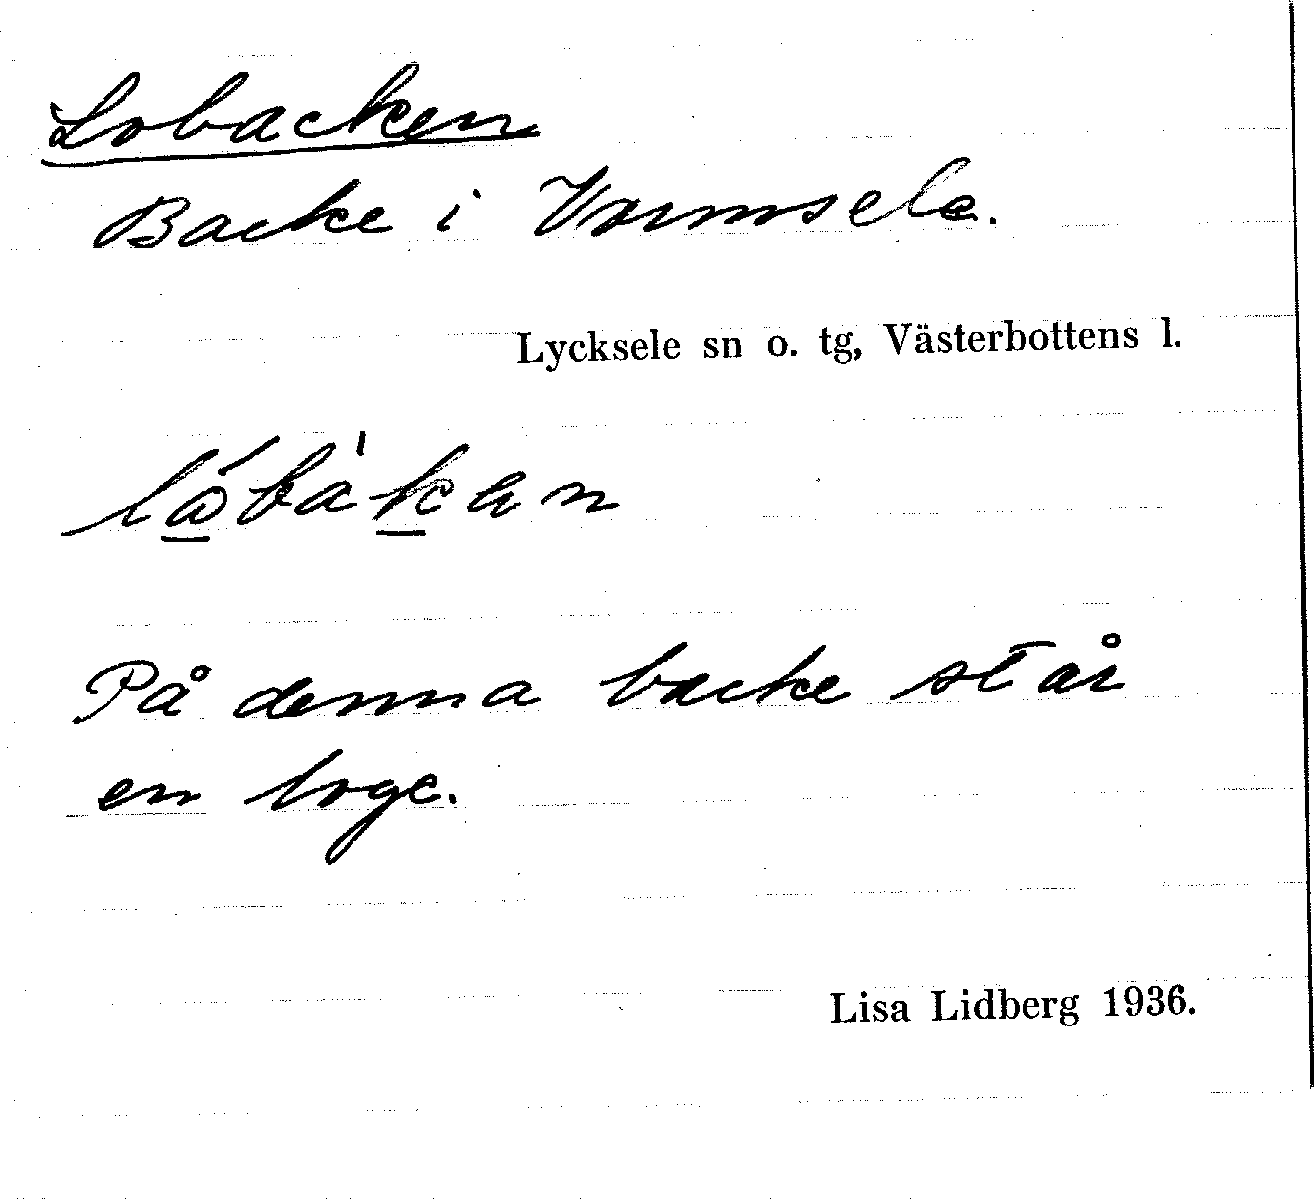 Lobacken
Backe i Vormsele.
Lycksele sn o. tg, Västerbottens l.
På denna backe står
en loge.
Lisa Lidberg 1936.